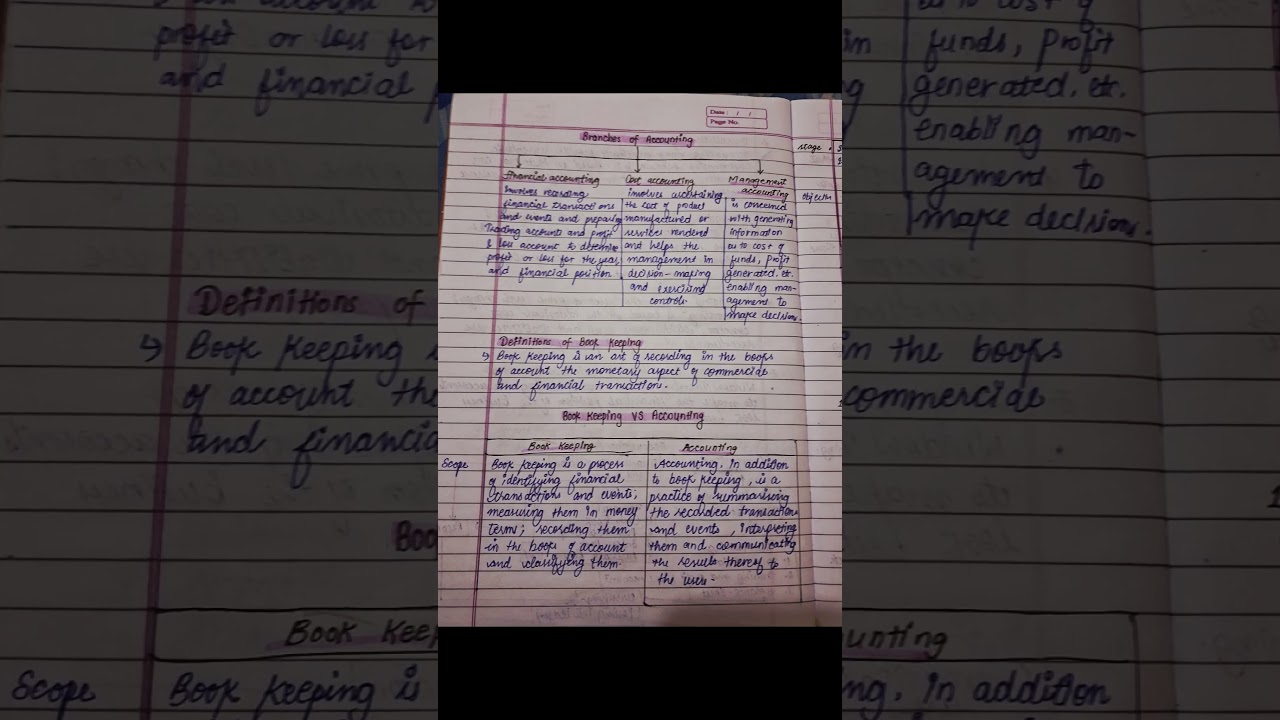 Date : / /
Page No.
Branches of Accounting
Financial accounting
involves recording
financial transactions
and events and preparing
Trading accounts and profit
& loss account to determine
profit or loss for the year,
and financial position.
Cost accounting
involves ascertaining
the cost of product
manufactured or
services rendered
and helps the
management in
decision-making
and exercising
controls
Management
accounting
is concerned
with generating
information
as to cost of
funds, profit
generated, etc.
enabling man-
agement to
make decisions.
stage.
objective
Definitions of Book Keeping
↳ Book keeping is an art of recording in the books
of account the monetary aspect of commercial
and financial transactions.
Book Keeping VS Accounting
Book Keeping
Accounting
Scope
Book keeping is a process
of identifying financial
transactions and events;
measuring them in money
terms; recording them
in the books of account
and classifying them.
Accounting, in addition
to book keeping, is a
practice of summarising
the recorded transactions
and events, interpreting
them and communicating
the results thereof to
the users.